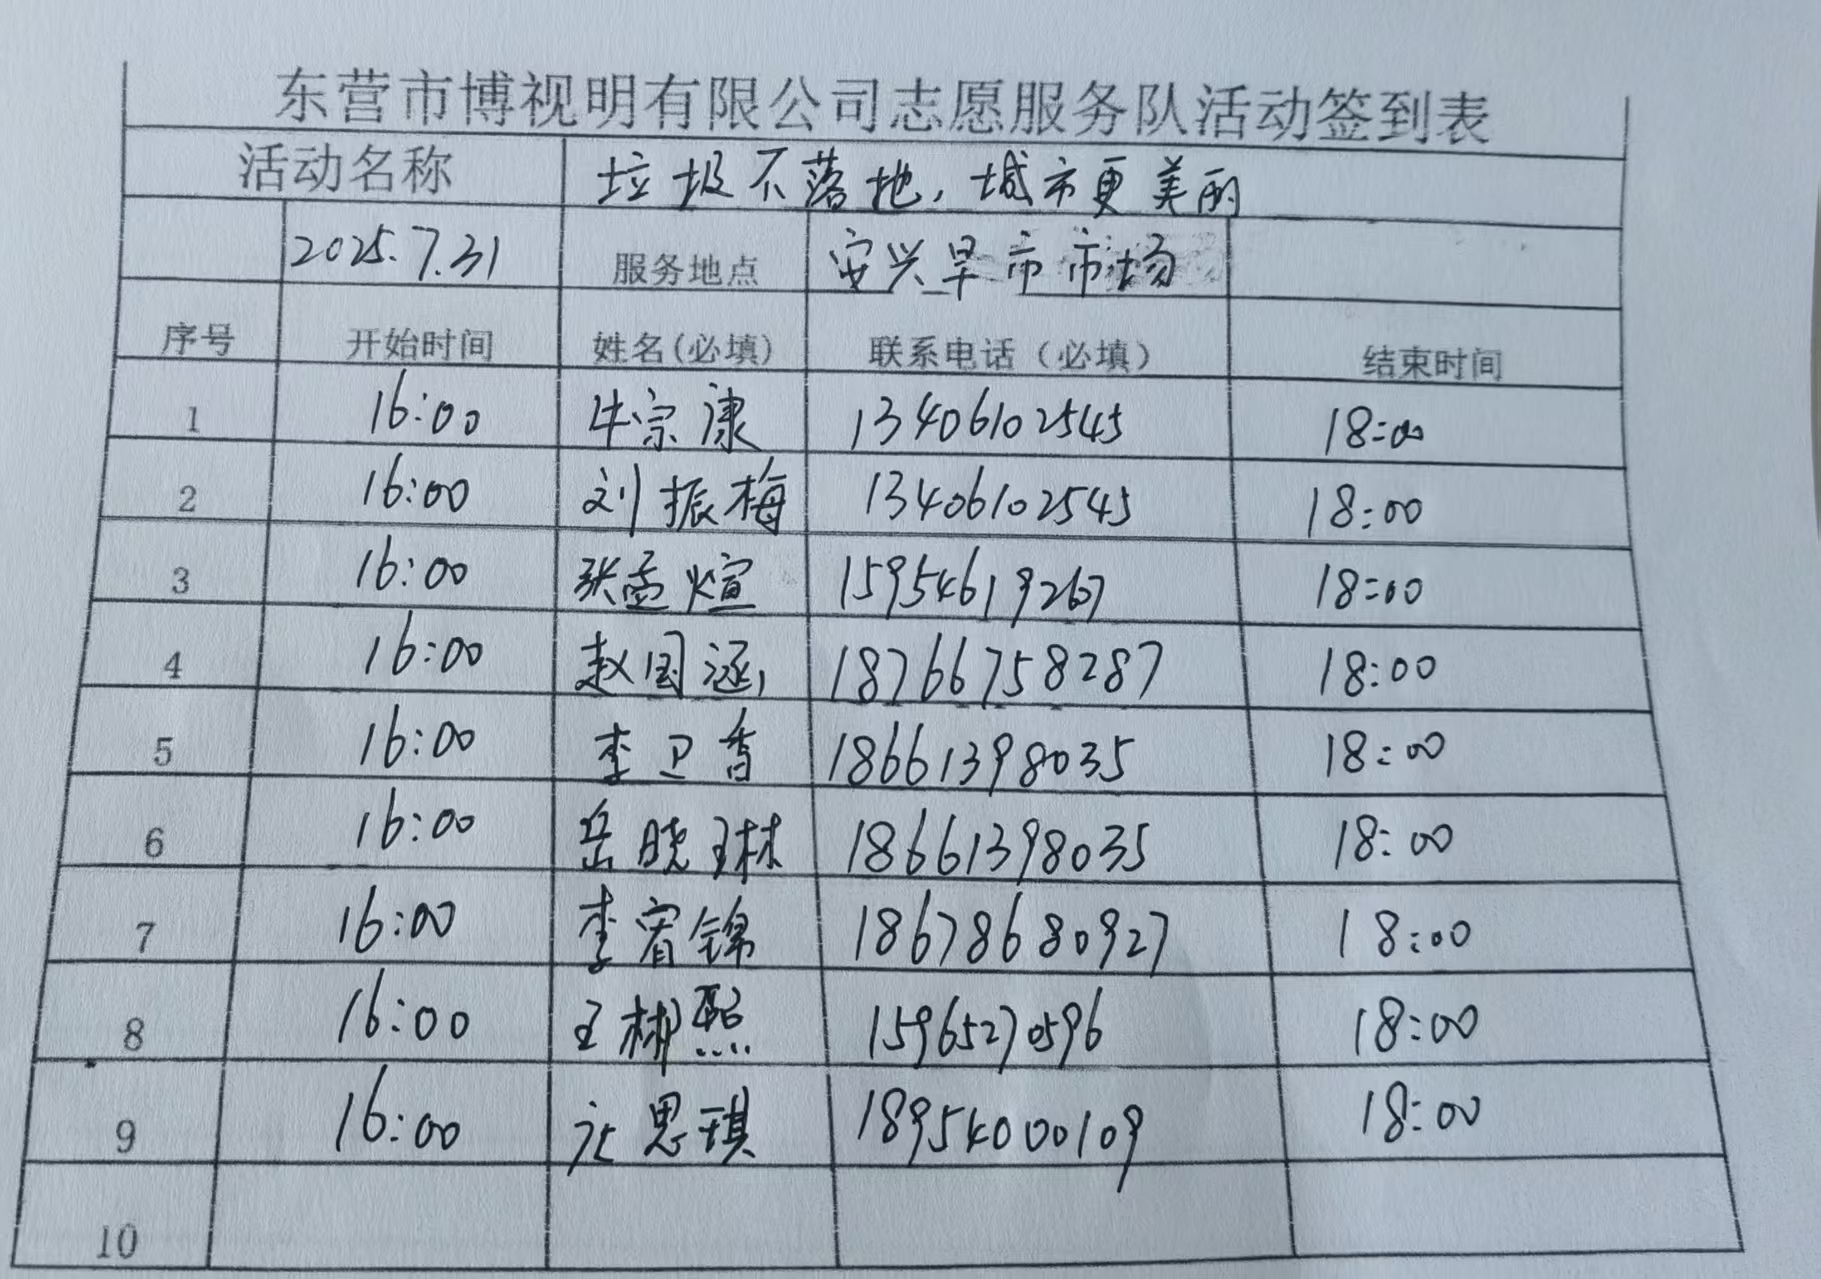 东营市博视明有限公司志愿服务队活动签到表
活动名称 垃圾不落地，城市更美丽
2025.7.31 服务地点 安兴早市市场
序号 开始时间 姓名(必填) 联系电话（必填） 结束时间
1 16:00 牛宗康 13406102545 18:00
2 16:00 刘振梅 13406102545 18:00
3 16:00 张孟煊 15954619267 18:00
4 16:00 赵国涵 18766758287 18:00
5 16:00 李卫香 18661398035 18:00
6 16:00 岳晓琳 18661398035 18:00
7 16:00 李宥锦 18678680927 18:00
8 16:00 王彬熙 15965270596 18:00
9 16:00 思琪 18954000109 18:00
10